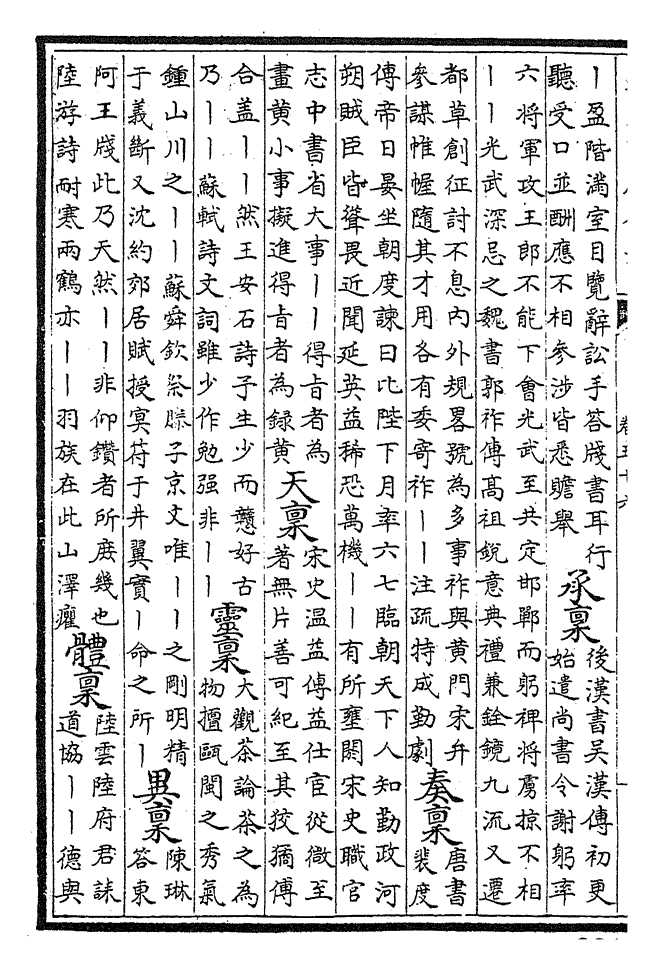 丨盈階滿室目覽辭訟手答牋書耳行
聽受口並酬應不相參涉皆悉贍舉
承稟
後漢書吳漢傳初更
始遣尚書令謝躬率
六將軍攻王郎不能下會光武至共定邯鄲而躬裨將虜掠不相
丨丨光武深忌之魏書郭祚傳高祖銳意典禮兼銓鏡九流又遷
都草創征討不息內外規畧號為多事祚與黄門宋弁
參謀帷幄隨其才用各有委寄祚丨丨注疏特成勤劇
奏稟
唐書
裴度
傳帝日晏坐朝度諫曰比陛下月率六七臨朝天下人知勤政河
朔賊臣皆聳畏近聞延英益稀恐萬機丨丨有所壅閼宋史職官
志中書省大事丨丨得㫖者為
畫黄小事擬進得㫖者為録黄
天稟
宋史温益傳益仕宦從微至
著無片善可紀至其狡猾傅
合盖丨丨然王安石詩子生少而戇好古
乃丨丨蘇軾詩文詞雖少作勉强非丨丨
靈稟
大觀茶論茶之為
物擅甌閩之秀氣
鍾山川之丨丨蘇舜欽祭滕子京文唯丨丨之剛明精
于義斷又沈約郊居賦授冥符于井翼實丨命之所丨
異稟
陳琳
答東
阿王牋此乃天然丨丨非仰鑽者所庶幾也
陸游詩耐寒兩鶴亦丨丨羽族在此山澤癯
體稟
陸雲陸府君誄
道協丨丨德與